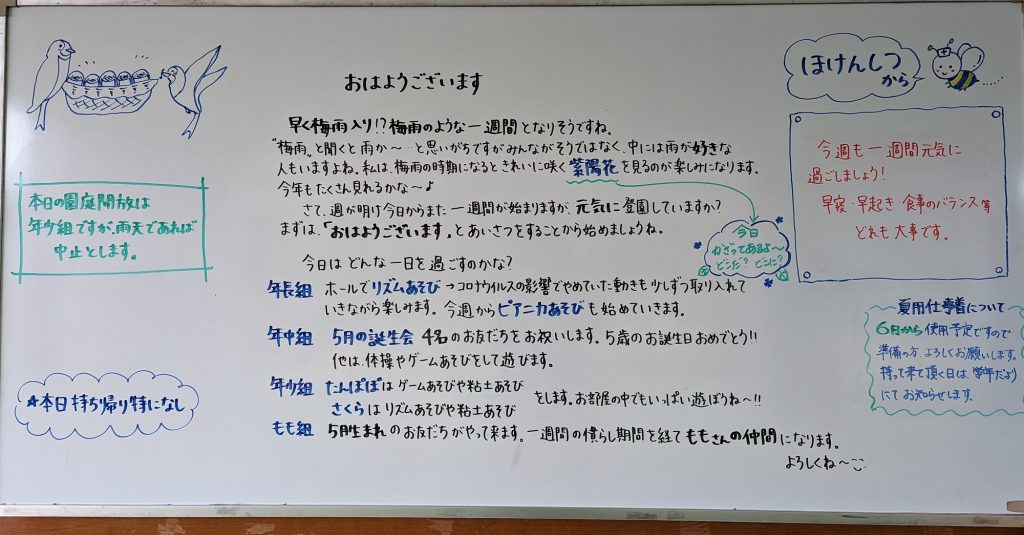 おはようございます
早く梅雨入り!?梅雨のような一週間となりそうですね。
"梅雨〟と聞くと雨か〜…と思いがちですがみんながそうではなく、中には雨が好きな
人もいますよね。私は、梅雨の時期になるときれいに咲く紫陽花を見るのが楽しみになります。
今年もたくさん見れるかな〜♪
さて、週が明け今日からまた一週間が始まりますが、元気に登園していますか?
まずは、「おはようございます。」とあいさつをすることから始めましょうね。
今日
かざってあるよ〜
どこだ?どこに?
今日はどんな一日を過ごすのかな?
年長組 ホールでリズムあそび→コロナウイルスの影響でやめていた動きも少しずつ取り入れて
いきながら楽しみます。今週からピアニカあそびも始めていきます。
年中組 5月の誕生会 4名のお友だちをお祝いします。5歳のお誕生日おめでとう!!
他は、体操やゲームあそびをして遊びます。
年少組 たんぽぽはゲームあそびや粘土あそび
さくらはリズムあそびや粘土あそび
をします。お部屋の中でもいっぱい遊ぼうね〜!!
もも組 5月生まれのお友だちがやって来ます。一週間の慣らし期間を経てももさんの仲間になります。
よろしくね〜
本日の園庭開放は
年少組ですが、雨天であれば
中止とします。
★本日持ち帰り特になし
ほけんしつ
から
今週も一週間元気に
過ごしましょう!
早寝・早起き・食事のバランス等
どれも大事です。
夏用仕事着について
6月から使用予定ですので
準備の方、よろしくお願いします。
持って来て頂く日は、学年だより
にてお知らせします。